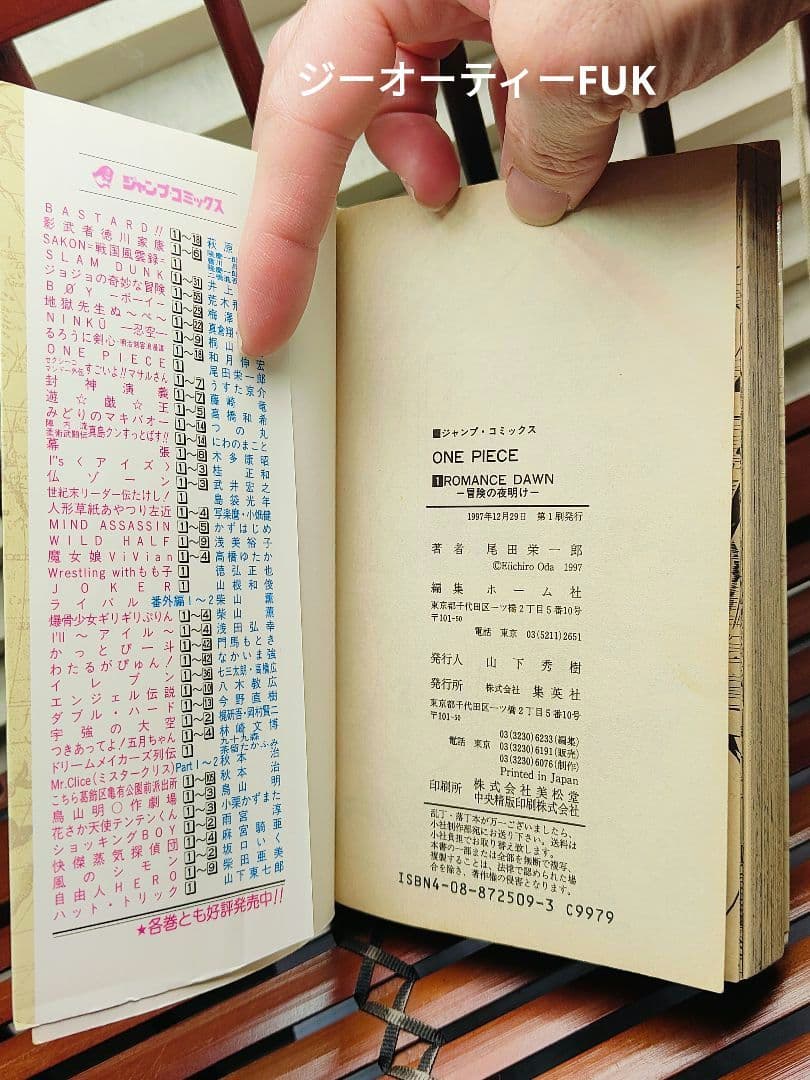 ジーオーティーFUK
ジャンプ・コミックス
BASTARD!! 1〜18 萩原
影武者徳川家康 1〜6
SAKON=戦国風雲録= 1
SLAM DUNK 1〜31 井上
ジョジョの奇妙な冒険 荒木飛
BØY ーボーイー 梅澤
地獄先生ぬ〜べ〜 真倉翔
NINKŪ ー忍空ー 1〜9 桐山
るろうに剣心・明治剣客浪漫譚 1〜18 和月伸宏
ONE PIECE 1 尾田栄一郎
セクシーコマンドー外伝すごいよ!!マサルさん 1〜7 うすた京介
封神演義 1〜7 藤崎竜
遊☆戯☆王 1〜5 高橋和希
みどりのマキバオー 1〜14 つの丸
陣内流柔術武闘伝真島クンすっとばす!! 1〜14 にわのまこと
幕張 1〜6 木多康昭
I"s〈アイズ〉 1〜3 桂正和
仏ゾーン 1〜3 武井宏之
世紀末リーダー伝たけし! 1 島袋光年
人形草紙あやつり左近 1〜4 写楽麿・小畑健
MIND ASSASSIN 1〜5 かずはじめ
WILD HALF 1〜9 浅美裕子
魔女娘ViVian 1〜4 高橋ゆたか
Wrestling withもも子 1 徳弘正也
JOKER 1 山根和俊
ライバル 番外編1〜2 柴山薫
爆骨少女ギリギリぷりん 1〜4 柴山薫
I'll 〜アイル〜 1〜4 浅田弘幸
かっとび一斗 1〜42 門馬もとき
わたるがぴゅん! 1〜42 なかいま強
イレブン 七三太朗・高橋広
エンジェル伝説 1〜10 八木教広
ダブル・ハード 1〜13 今野直樹
宇強の大空 1〜2 梶研吾・岡村賢二
つきあってよ!五月ちゃん 1〜4 林崎文博
ドリームメイカーズ列伝 1 九十九森 茶留たかふみ
Mr.Clice(ミスタークリス) Part 1〜2 秋本治
こちら葛飾区亀有公園前派出所 秋本治
鳥山明○作劇場 1〜3 鳥山明
花さか天使テンテンくん 1〜3 小栗かずまた
ショッキングBOY 1〜2 雨宮淳
快傑蒸気探偵団 1〜4 麻宮騎亜
風のシモン 1〜2 坂口いく
自由人HERO 1〜9 柴田亜美
ハット・トリック 1 山下東七郎
★各巻とも好評発売中!!
■ジャンプ・コミックス
ONE PIECE
1 ROMANCE DAWN
ー冒険の夜明けー
1997年12月29日 第1刷発行
著者 尾田栄一郎
©Eiichiro Oda 1997
編集 ホーム社
東京都千代田区一ツ橋2丁目5番10号
〒101-50
電話 東京 03(5211)2651
発行人 山下秀樹
発行所 株式会社 集英社
東京都千代田区一ツ橋2丁目5番10号
〒101-50
03(3230)6233(編集)
電話 東京 03(3230)6191(販売)
03(3230)6076(制作)
Printed in Japan
印刷所 株式会社美松堂
中央精版印刷株式会社
乱丁・落丁本が万一ございましたら、
小社制作部宛にお送り下さい。送料は
小社負担でお取り替え致します。
本書の一部または全部を無断で複写、
複製することは、法律で認められた場
合を除き、著作権の侵害となります。
ISBN4-08-872509-3 C9979